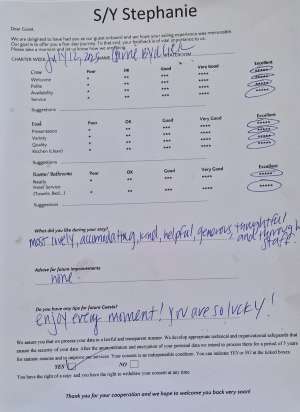 S/Y Stephanie
Dear Guest,
We are delighted to have had you as our guest onboard and hope your sailing experience was memorable.
Our goal is to offer you a fine day journey. To that end, your feedback is of vital importance to us.
Please take a moment and let us know how we are doing.
CHARTER WEEK: NAME:
Crew Poor OK Good Very Good Excellent
Welcome * ** *** **** *****
Polite * ** *** **** *****
Availability * ** *** **** *****
Service * ** *** **** *****
Suggestions
Food Poor OK Good Very Good Excellent
Presentation * ** *** **** *****
Variety * ** *** **** *****
Quality * ** *** **** *****
Kitchen (clean) * ** *** **** *****
Suggestions
Rooms/ Bathrooms Poor OK Good Very Good Excellent
Ready * ** *** **** *****
Hotel Service * ** *** **** *****
(Towels, Bed...)
Suggestions
What did you like during your stay?
most lively, accomodating, kind, helpful, generous, thoughtful
and funny
staff.
Advise for future improvements
none
Do you have any tips for future Guests?
enjoy every moment! You are so lucky!
We assure you that we process your data in a lawful and transparent manner. We develop appropriate technical and organisational safeguards that
ensure the security of your data. After the anonymisation and encryption of your personal data we intend to process them for a period of 5 years
for statistic reasons and to improve our services. Your consent is an indispensable condition. You can indicate YES or NO at the linked boxes:
YES NO
You have the right of a copy and you have the right to withdraw your consent at any time.
Thank you for your cooperation and we hope to welcome you back very soon!